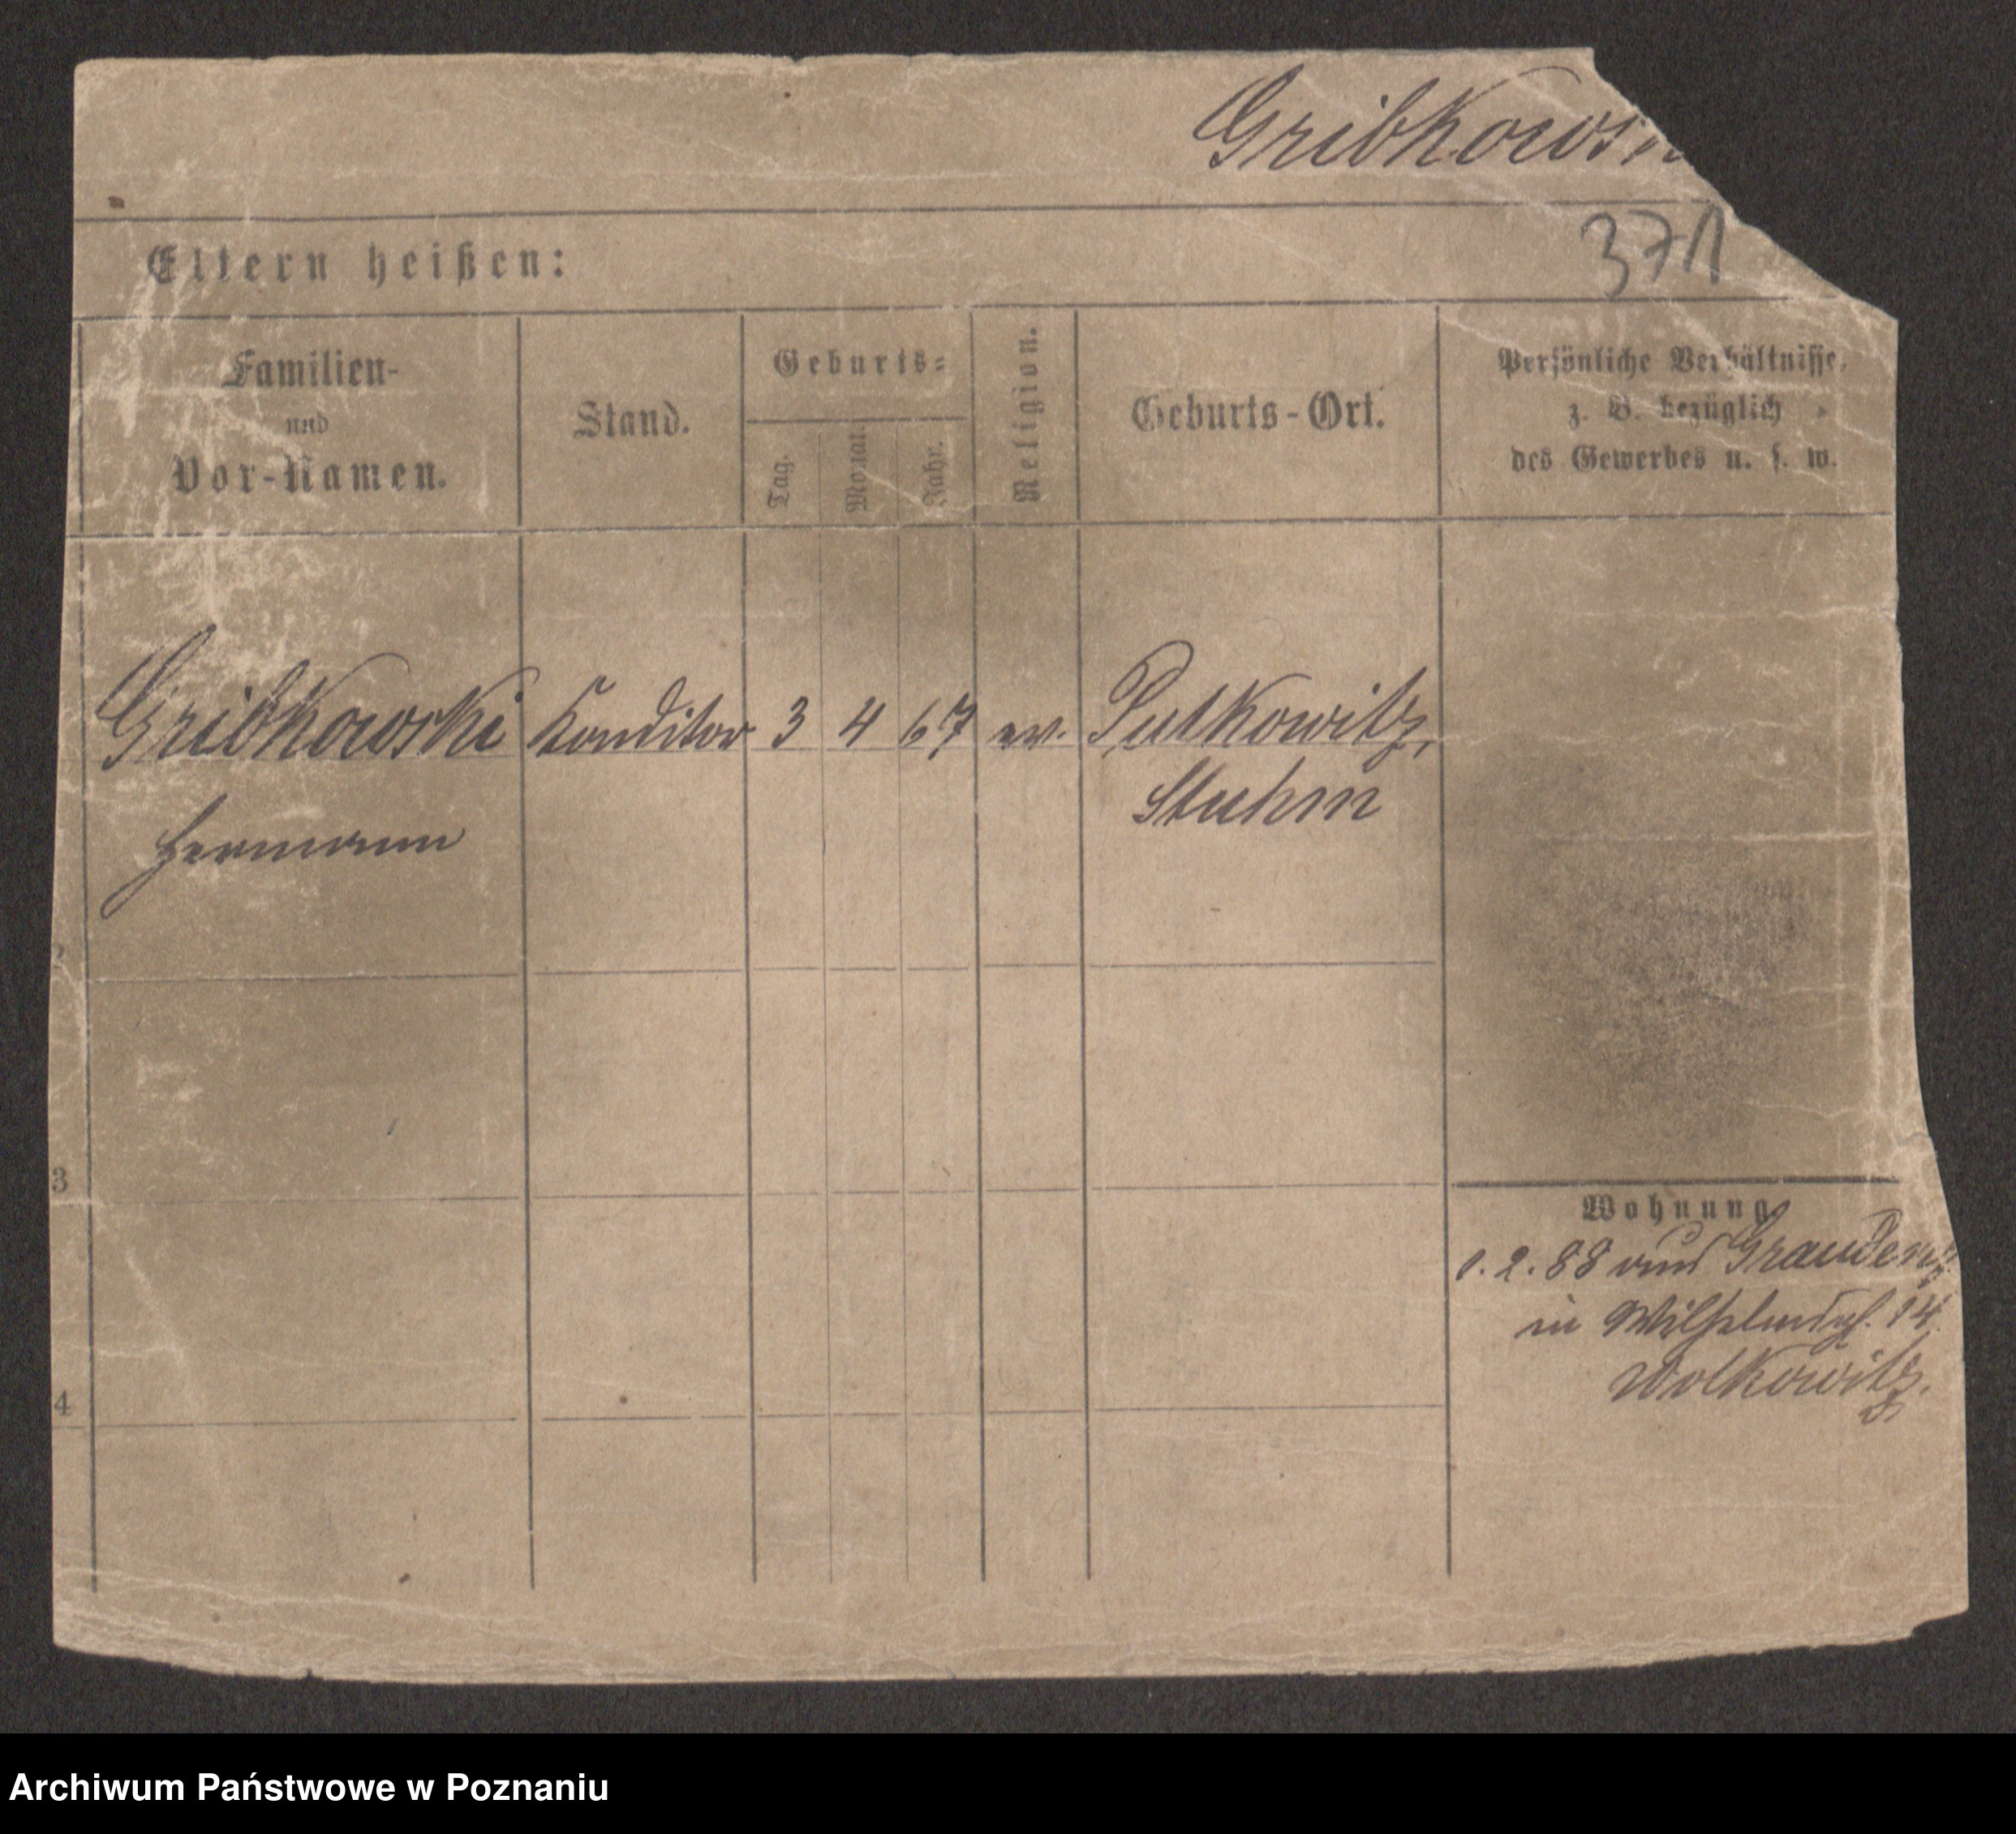 Gribkows
371
Eltern heißen:
Familien-
und
Vor-Namen.
Stand.
Geburts-
Tag.
Monat.
Jahr.
Religion.
Geburts-Ort.
Persönliche Verhältnisse,
z. B. bezüglich
des Gewerbes u. s. w.
Gribkowski Konditor 3 4 67 ev. Putkowitz,
Hermann
Stuhm
2
3
4
Wohnung
1.2.88 aus Graudenz
in Wilhelmstr. 14
Wolkowitz.
Archiwum Państwowe w Poznaniu